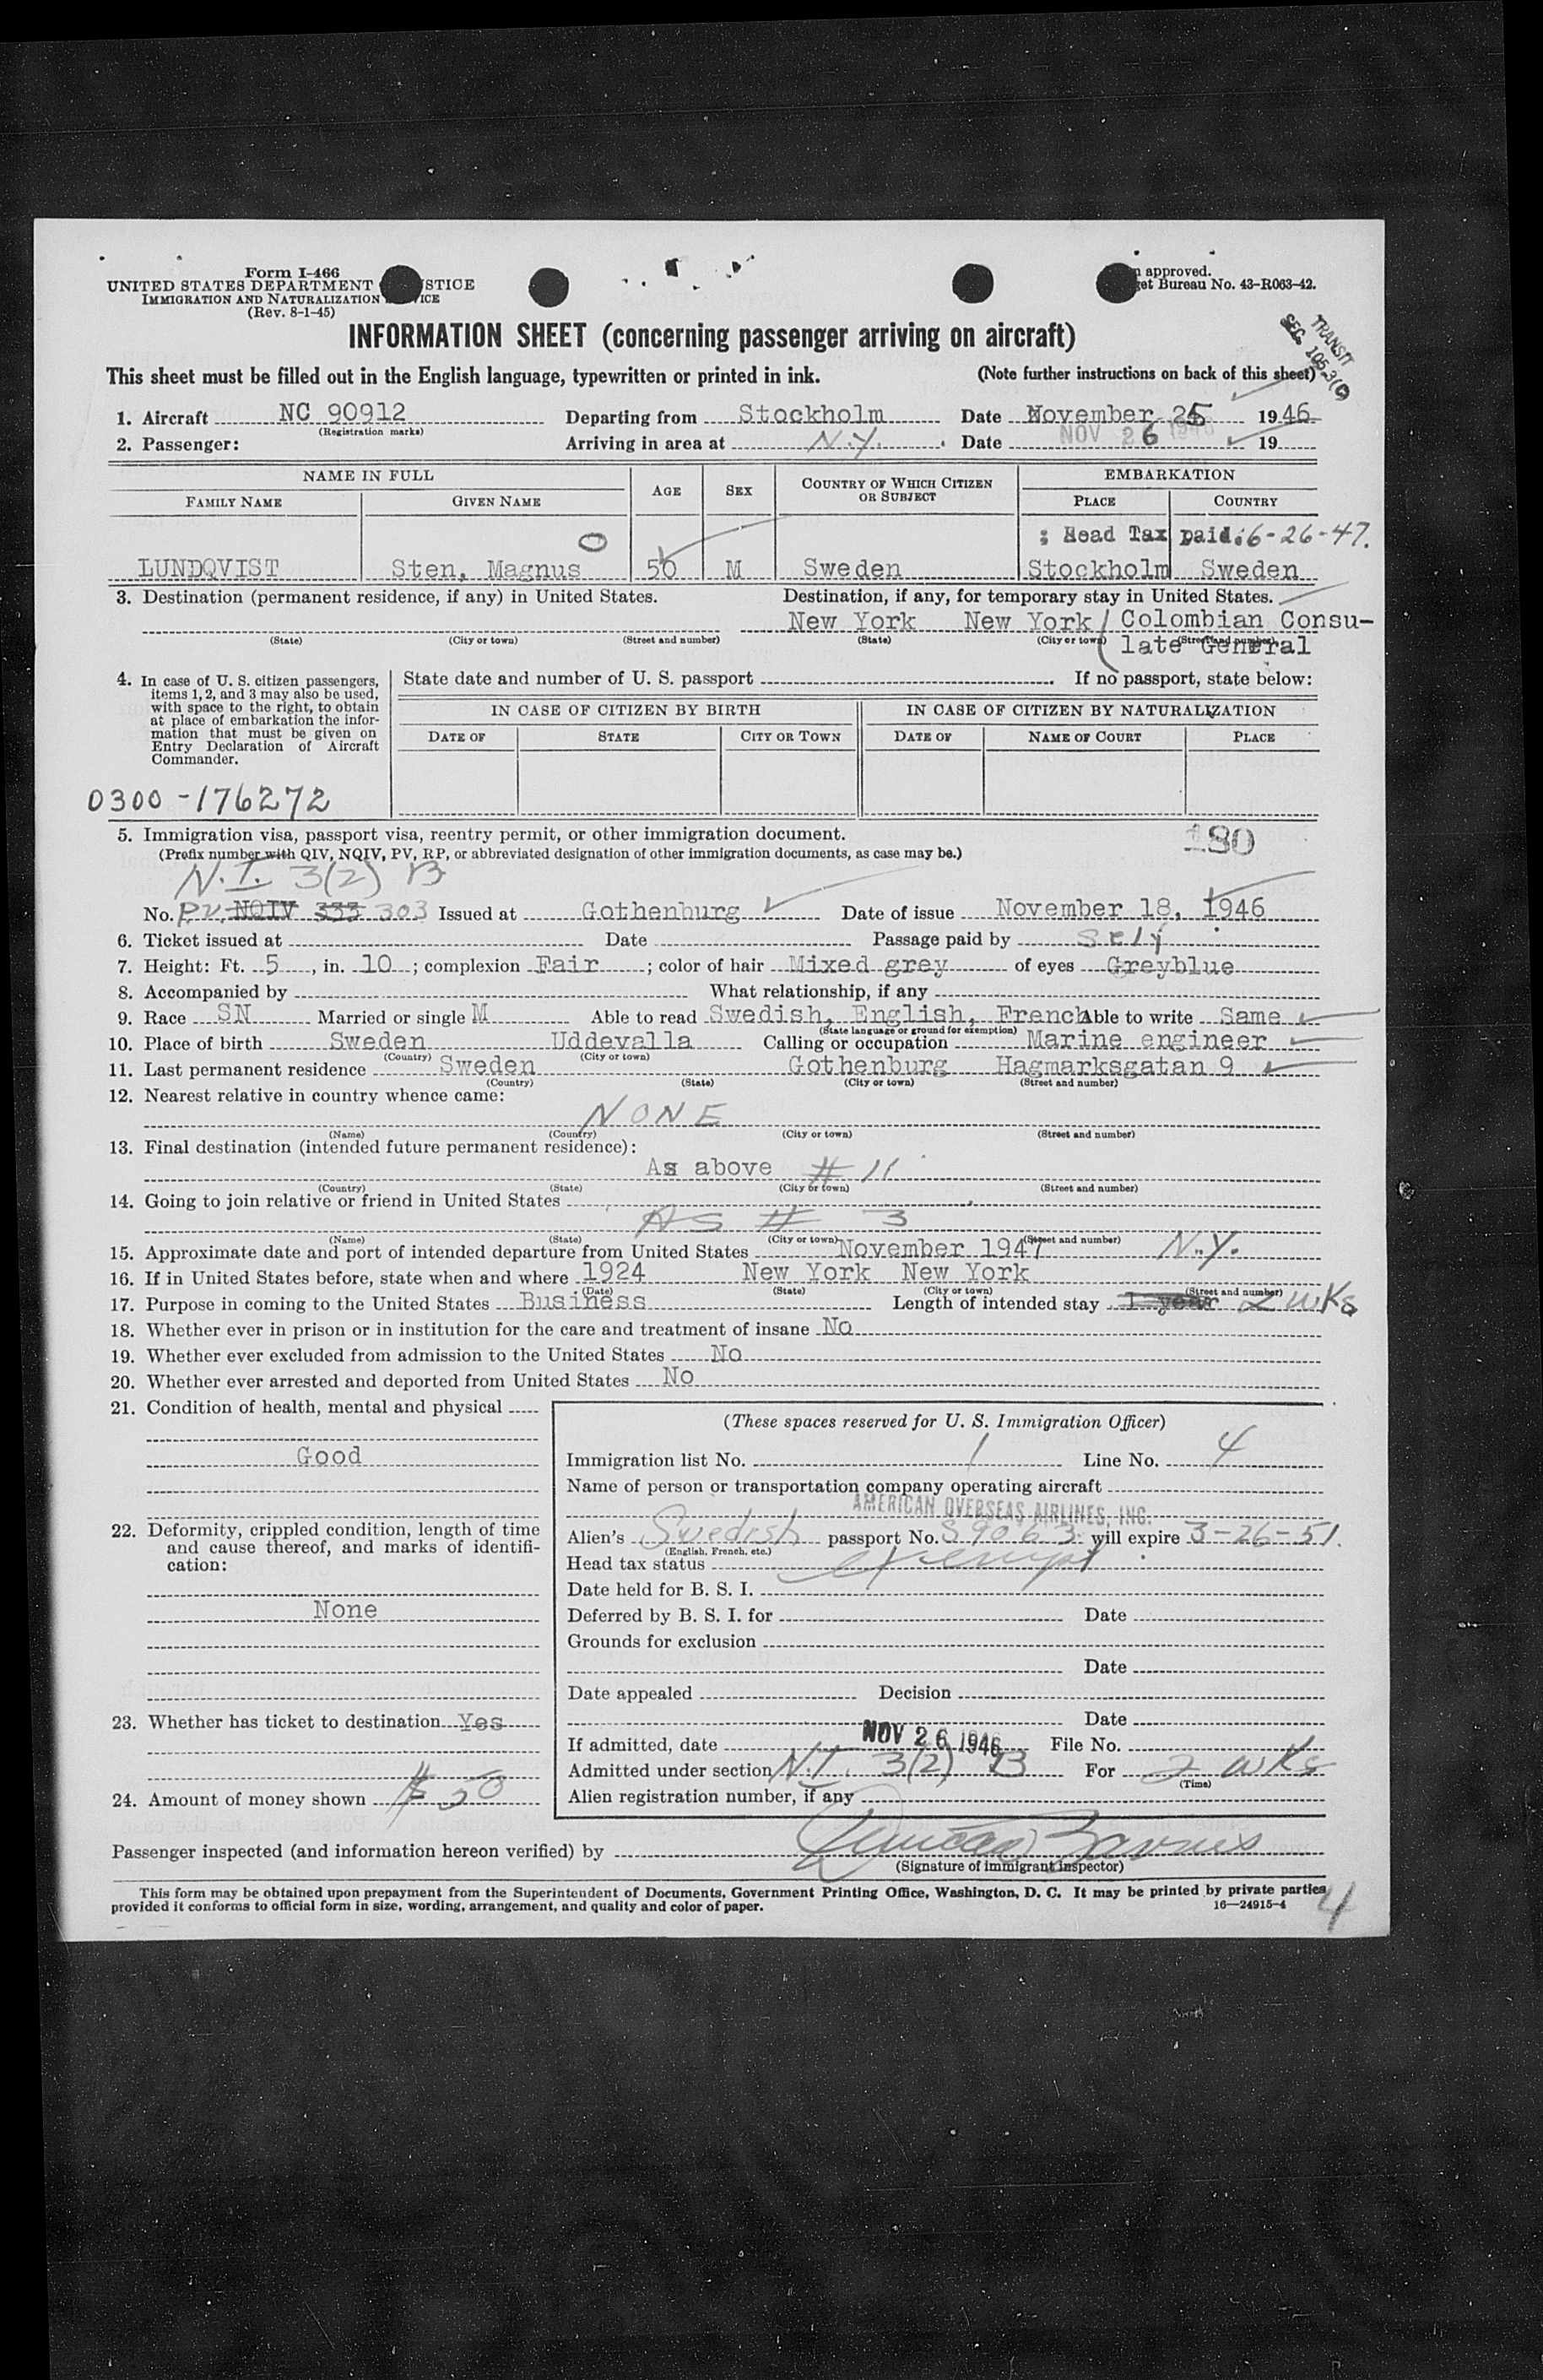 Form I-466
UNITED STATES DEPARTMENT STICE
IMMIGRATION AND NATURALIZATION ICE
(Rev. 8-1-45)
n approved.
get Bureau No. 43-R063-42.
TRANSIT
SEC. 105.3(c)
INFORMATION SHEET (concerning passenger arriving on aircraft)
This sheet must be filled out in the English language, typewritten or printed in ink. (Note further instructions on back of this sheet)
1. Aircraft NC 90912 Departing from Stockholm Date November 25 1946
(Registration marks)
2. Passenger: Arriving in area at N.Y. Date NOV 26 1946 19
NAME IN FULL AGE SEX COUNTRY OF WHICH CITIZEN OR SUBJECT EMBARKATION
FAMILY NAME GIVEN NAME PLACE COUNTRY
0 : Head Tax paid: 6-26-47.
LUNDQVIST Sten, Magnus 50 M Sweden Stockholm Sweden
3. Destination (permanent residence, if any) in United States. Destination, if any, for temporary stay in United States.
New York New York Colombian Consu-
(State) (City or town) (Street and number) (State) (City or town) (Street and number)
late General
4. In case of U. S. citizen passengers, items 1, 2, and 3 may also be used, with space to the right, to obtain at place of embarkation the information that must be given on Entry Declaration of Aircraft Commander.
State date and number of U. S. passport If no passport, state below:
IN CASE OF CITIZEN BY BIRTH IN CASE OF CITIZEN BY NATURALIZATION
DATE OF STATE CITY OR TOWN DATE OF NAME OF COURT PLACE
0300-176272
5. Immigration visa, passport visa, reentry permit, or other immigration document.
(Prefix number with QIV, NQIV, PV, RP, or abbreviated designation of other immigration documents, as case may be.)
N.I. 3(2) B
No. PV. NQIV 333 303 Issued at Gothenburg Date of issue November 18, 1946
6. Ticket issued at Date Passage paid by Self
7. Height: Ft. 5, in. 10; complexion Fair; color of hair Mixed grey of eyes Greyblue
8. Accompanied by What relationship, if any
9. Race SN Married or single M Able to read Swedish, English, French Able to write Same
(State language or ground for exemption)
10. Place of birth Sweden Uddevalla Calling or occupation Marine engineer
(Country) (City or town)
11. Last permanent residence Sweden Gothenburg Hagmarksgatan 9
(Country) (State) (City or town) (Street and number)
12. Nearest relative in country whence came:
NONE
(Name) (Country) (City or town) (Street and number)
13. Final destination (intended future permanent residence):
As above # 11
(Country) (State) (City or town) (Street and number)
14. Going to join relative or friend in United States
AS # 3
(Name) (State) (City or town) (Street and number)
15. Approximate date and port of intended departure from United States November 1947 N.Y.
16. If in United States before, state when and where 1924 New York New York
(Date) (State) (City or town) (Street and number)
17. Purpose in coming to the United States Business Length of intended stay 1 year 2 wks
18. Whether ever in prison or in institution for the care and treatment of insane No
19. Whether ever excluded from admission to the United States No
20. Whether ever arrested and deported from United States No
21. Condition of health, mental and physical
Good
22. Deformity, crippled condition, length of time and cause thereof, and marks of identification:
None
23. Whether has ticket to destination Yes
24. Amount of money shown $ 50
(These spaces reserved for U. S. Immigration Officer)
Immigration list No. 1 Line No. 4
Name of person or transportation company operating aircraft
AMERICAN OVERSEAS AIRLINES, INC.
Alien's Swedish passport No. 89063 will expire 3-26-51.
(English, French, etc.)
Head tax status exempt
Date held for B. S. I.
Deferred by B. S. I. for Date
Grounds for exclusion
Date
Date appealed Decision
Date
If admitted, date NOV 26 1946 File No.
Admitted under section N.I. 3(2) B For 2 wks
(Time)
Alien registration number, if any
Passenger inspected (and information hereon verified) by
(Signature of immigrant inspector)
This form may be obtained upon prepayment from the Superintendent of Documents, Government Printing Office, Washington, D. C. It may be printed by private parties
provided it conforms to official form in size, wording, arrangement, and quality and color of paper. 16—24915-4
4